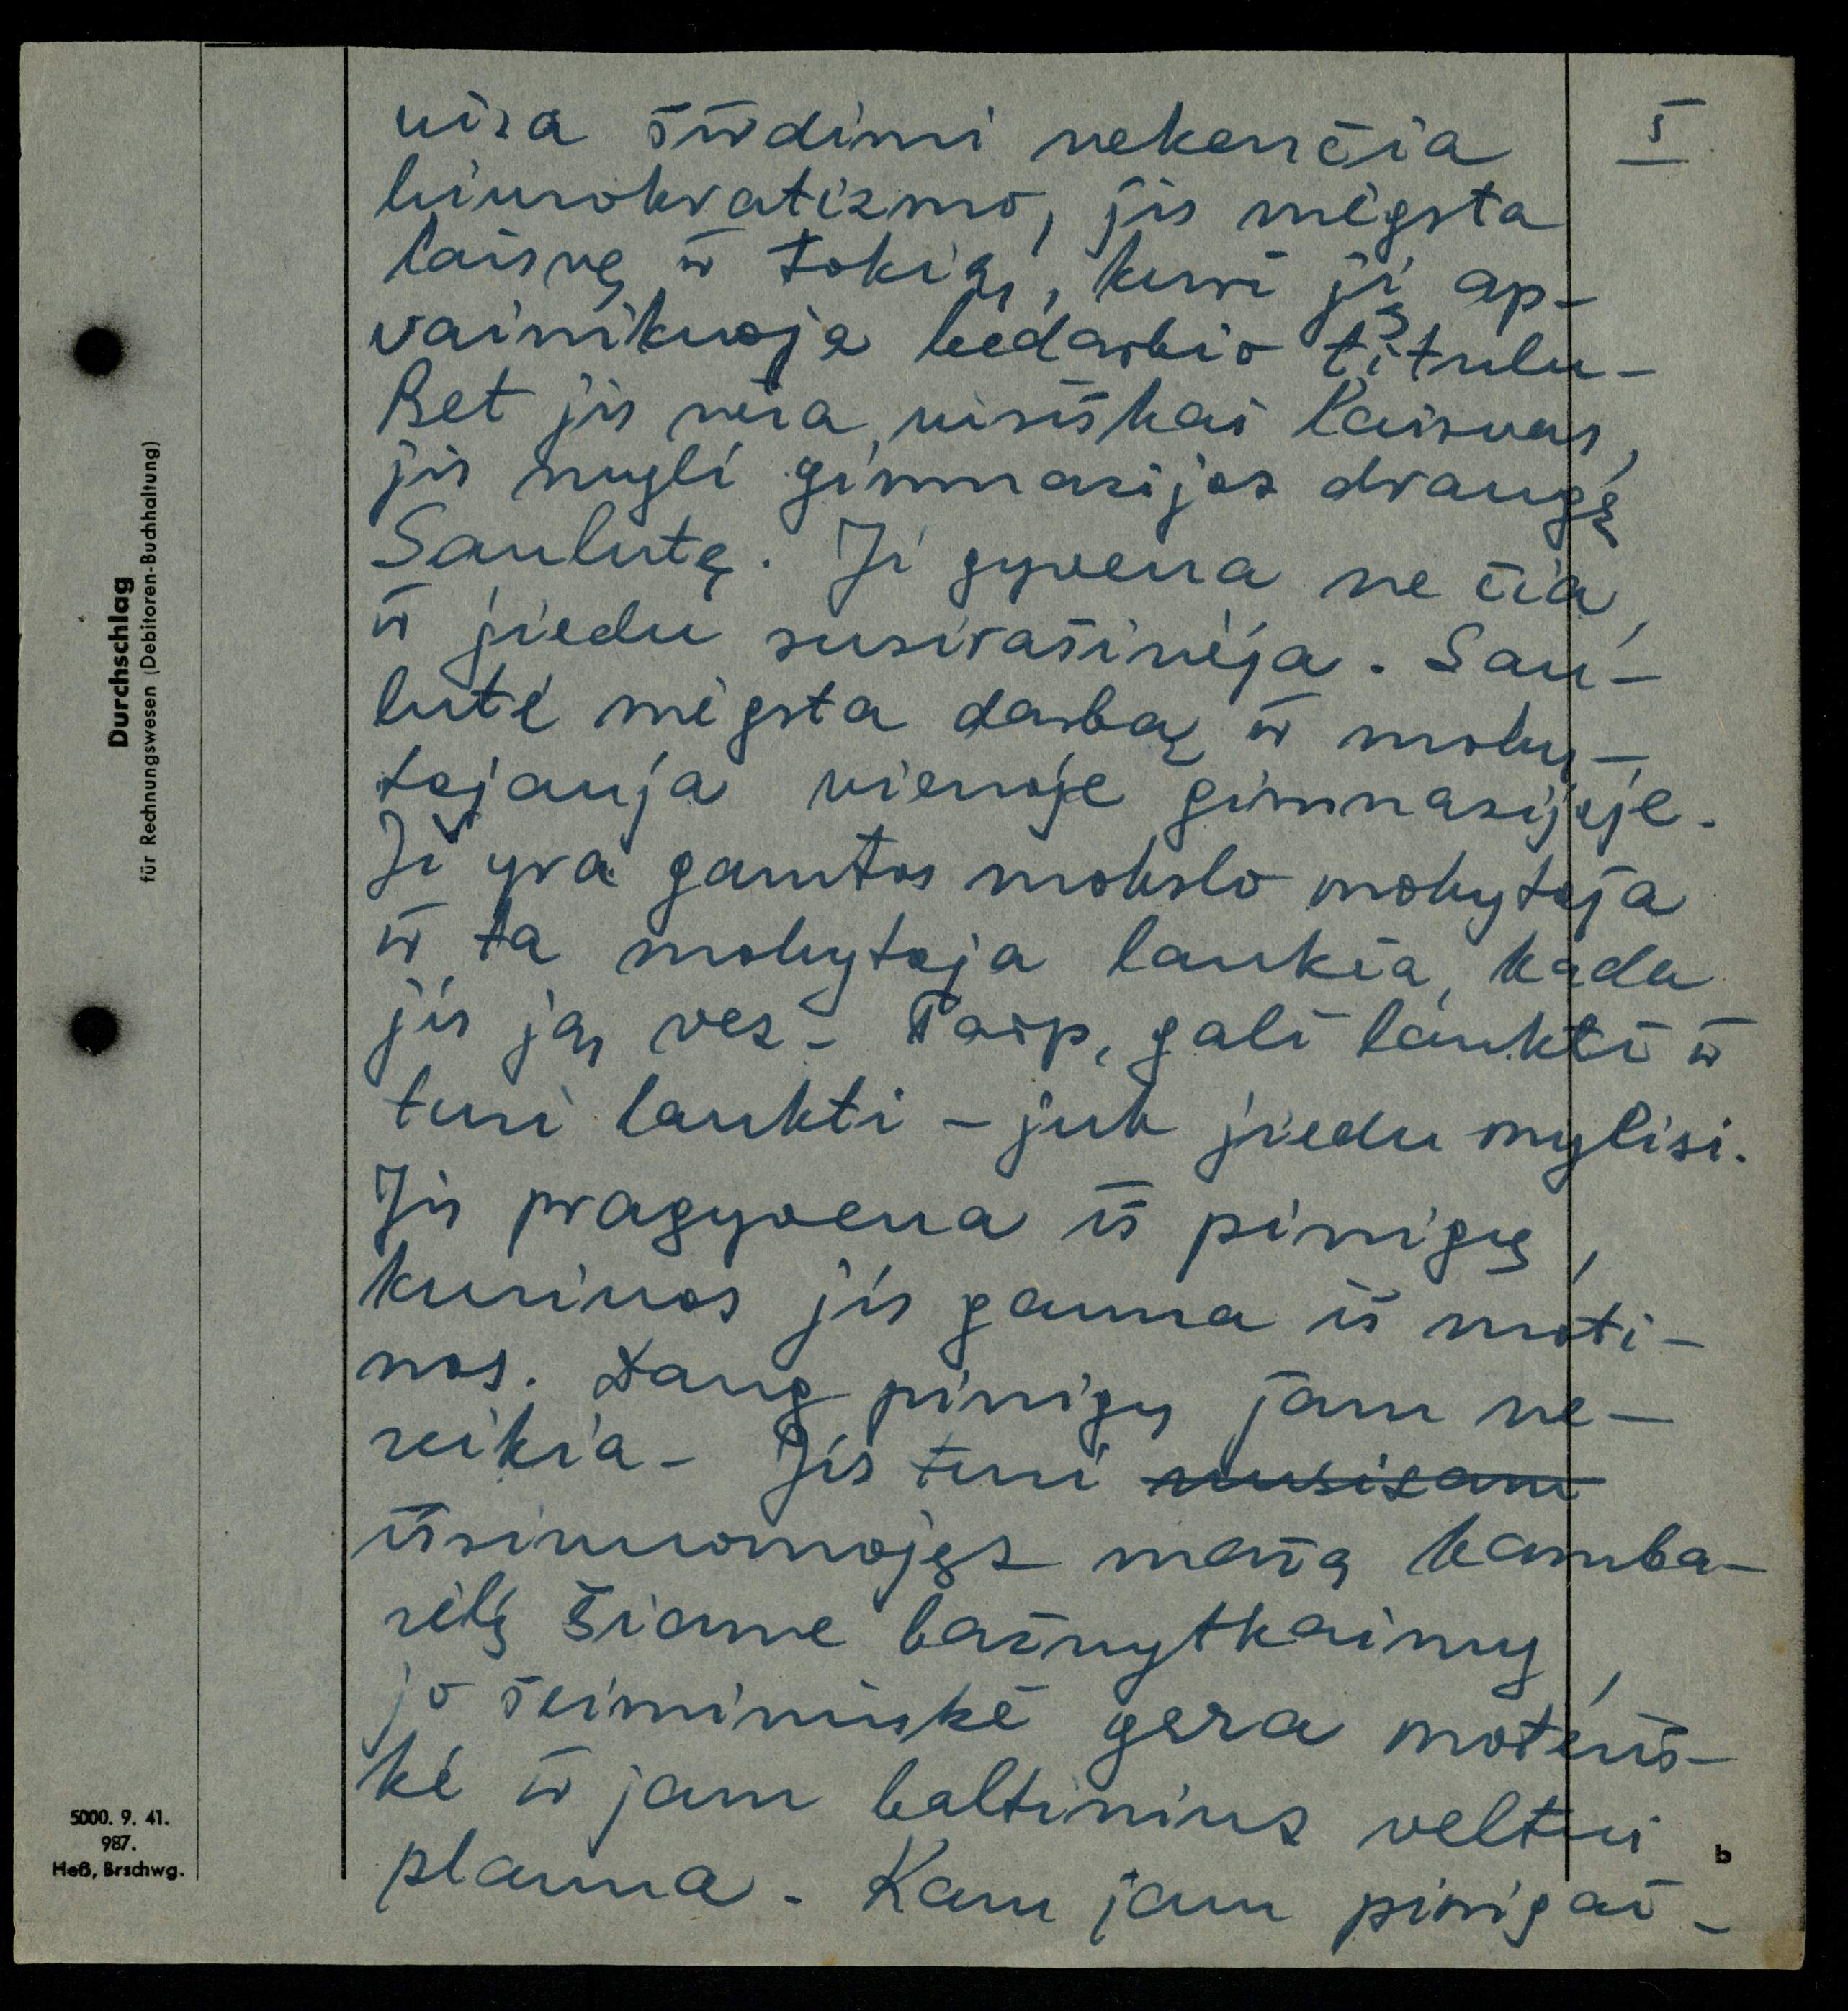 visa širdimi nekenčia
biurokratizmo, jis mėgsta
laisvę ir tokią, kuri jį ap-
vainikuoja bedarbio titulu-
Bet jis nėra visiškai laisvas,
jis mygli gimnazijos draugę
Saulutę. Ji gyvena ne čia,
ir jiedu susirašinėja. Sau-
lutė mėgsta darbą ir moky-
tojauja vienoje gimnazijoje.
Ji yra gamtos mokslo mokytoja
ir ta mokytoja laukia, kada
jis ją ves- Taip, gali laukti ir
turi laukti - juk jiedu mylisi.
Jis pragyvena iš pinigų,
kuriuos jis gauna iš moti-
nos. Daug pinigų jam ne-
reikia- Jis turi nusisam
išsinuomojęs mažą kamba-
rėlį šiame bažnytkaimy,
jo šeimininkė gera moteriš-
kė ir jam baltinius veltui
plauna - Kam jam pinigai -
5
Durchschlag
für Rechnungswesen (Debitoren-Buchhaltung)
5000. 9. 41.
987.
Heß, Brschwg.
b